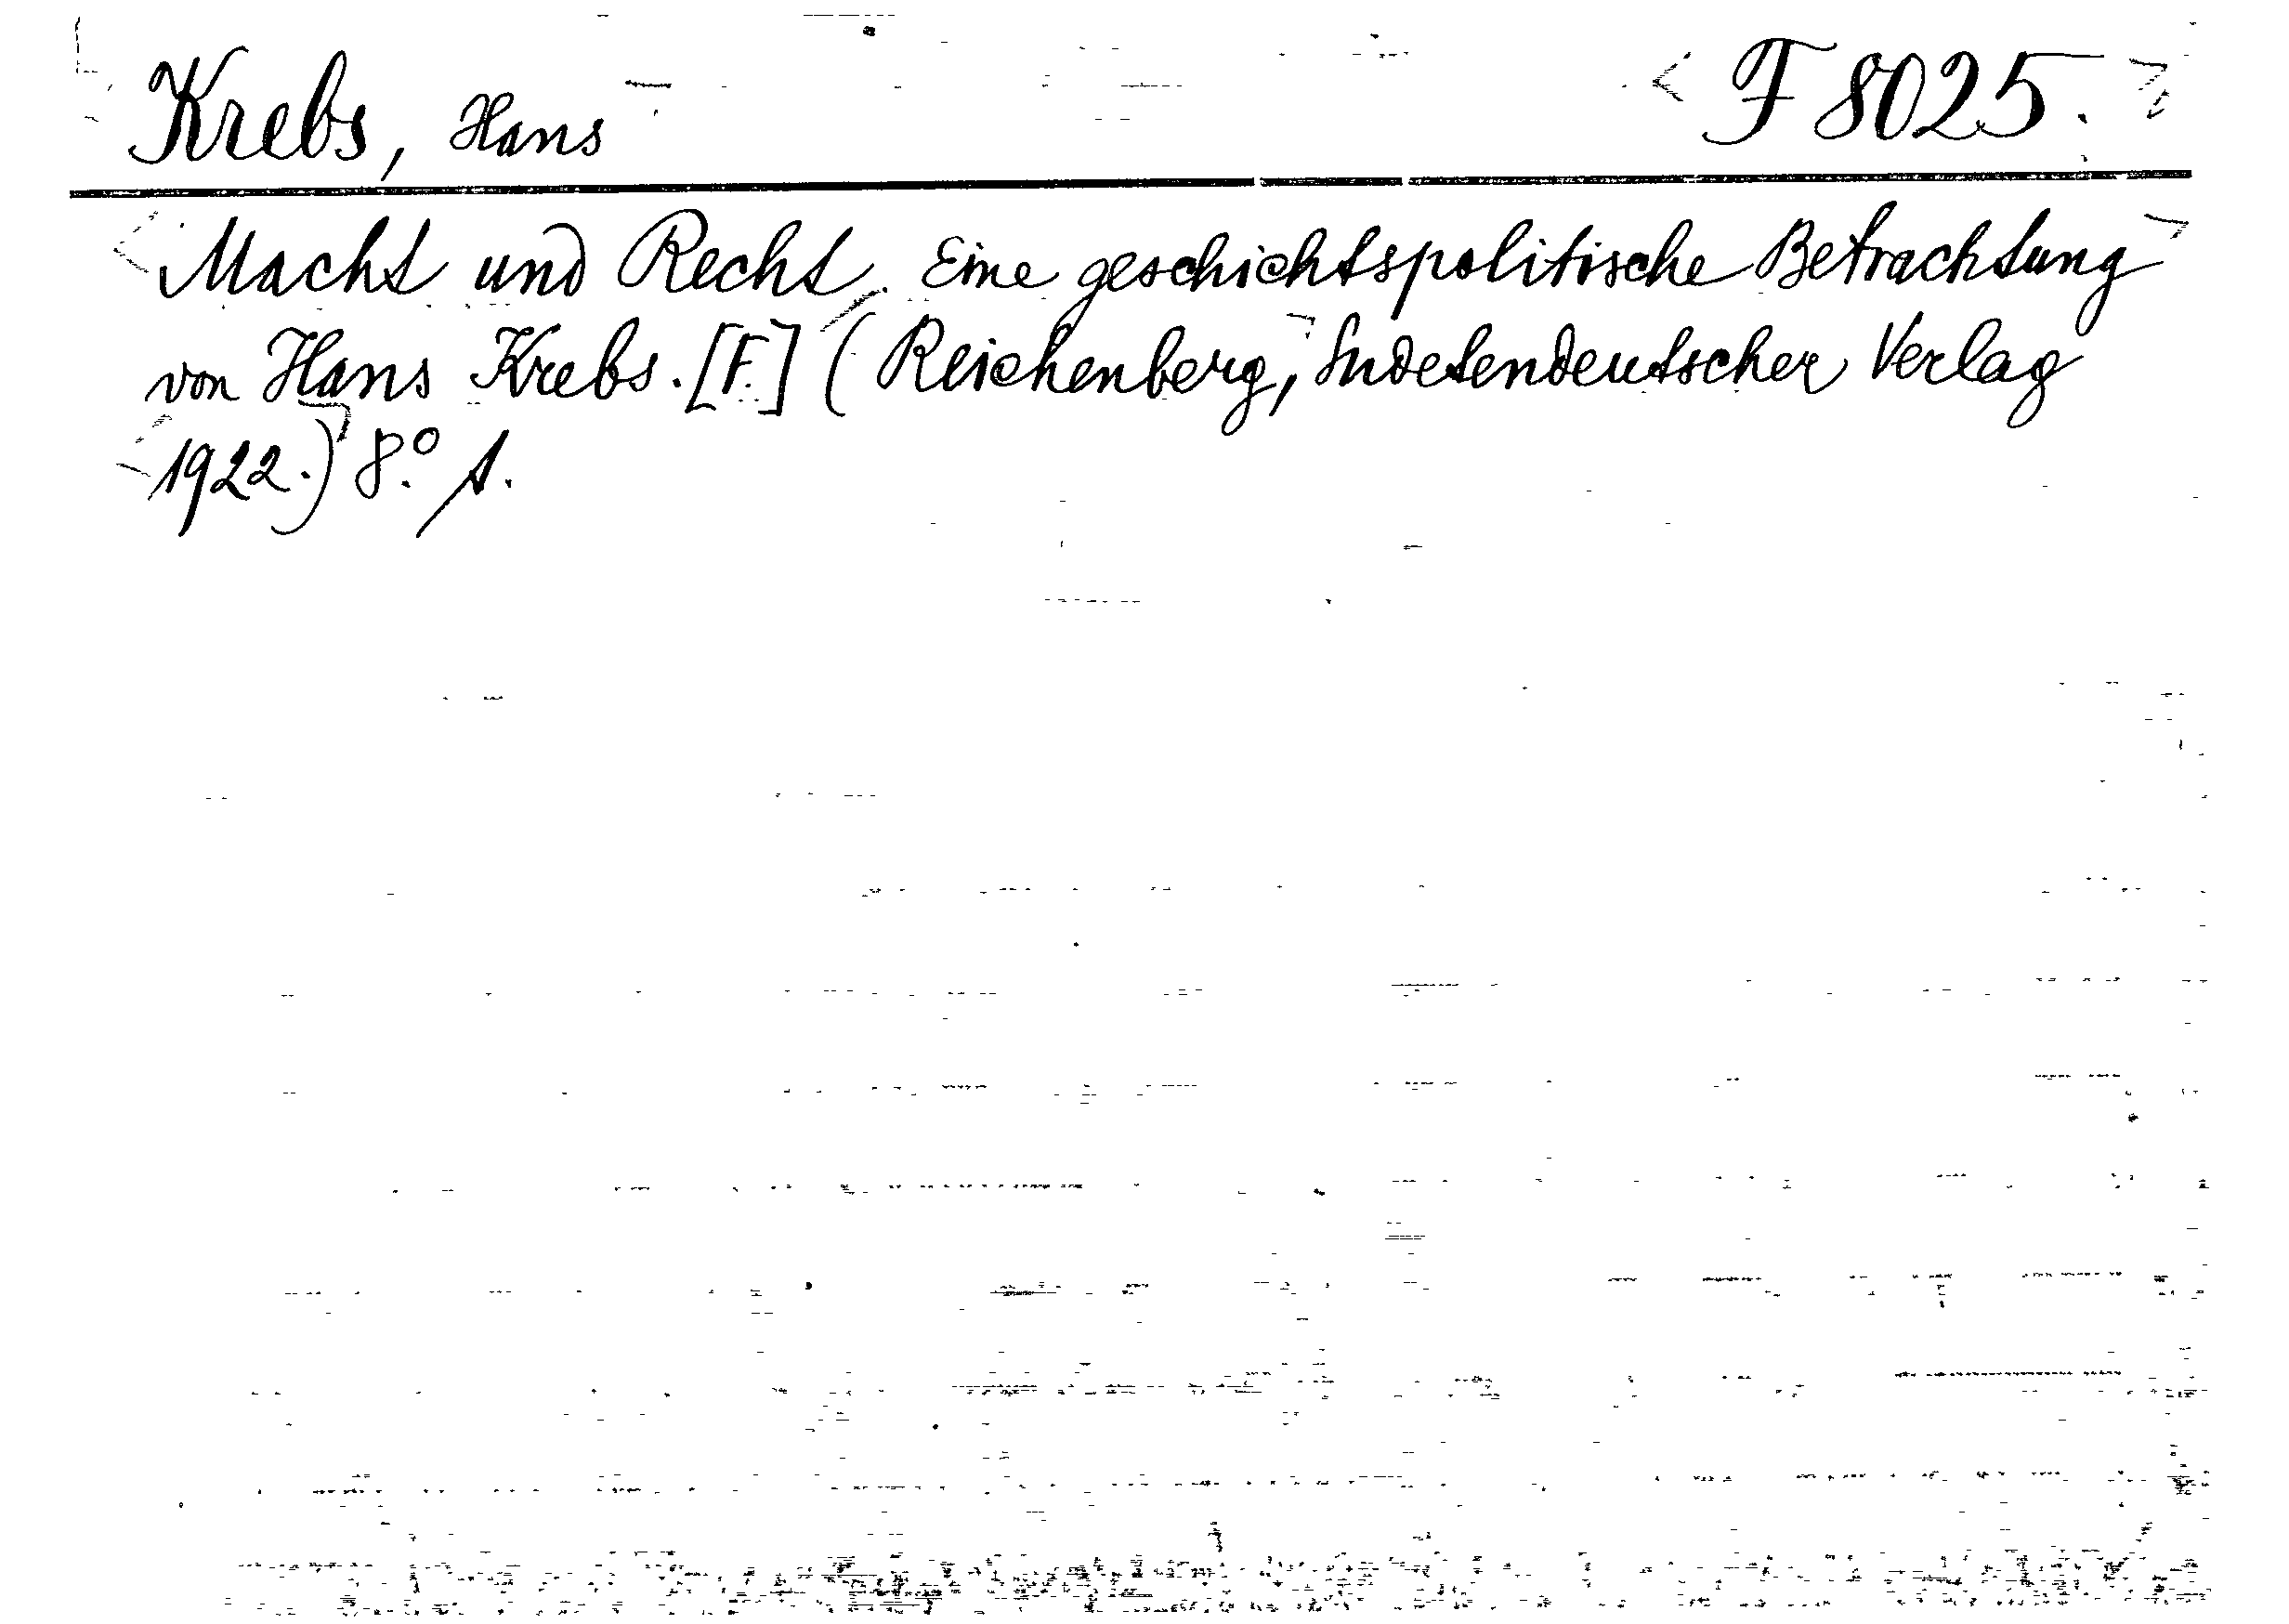 Krebs, Hans F 8025.
Macht und Recht. Eine geschichtspolitische Betrachtung
von Hans Krebs. [F.] (Reichenberg, Sudetendeutscher Verlag
1922.) 8.° s.